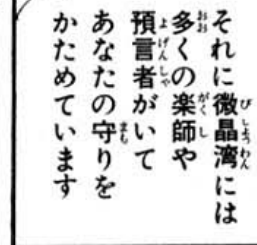 それに微晶湾には
多くの楽師や
預言者がいて
あなたの守りを
かためています